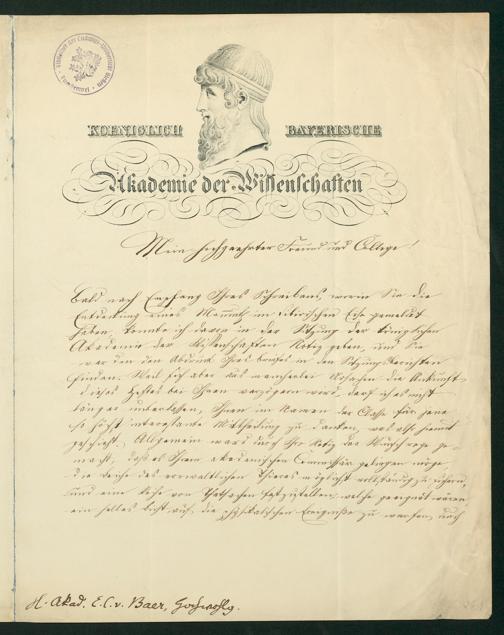 KOENIGLICH BAYERISCHE
Akademie der Wissenschaften
Mein hochgeehrter Freund und College!
Bald nach Empfang Ihres Schreibens, worin Sie die
Entdeckung eines Mammuth im sibirischen Eise gemeldet
haben, konnte ich davon in der Sitzung der königlichen
Akademie der Wissenschaften Notiz geben, und Sie
werden den Abdruck Ihres Briefes in den Sitzungsberichten
finden. Weil sich aber aus mancherlei Ursachen die Ankunft
dieses Heftes bei Ihnen verzögern wird, darf ich es nicht
länger unterlassen, Ihnen im Namen der Classe für jene
so höchst interessante Mittheilung zu danken, was also hiemit
geschieht. Allgemein ward durch Ihre Notiz der Wunsch rege ge-
macht, daß es Ihrem akademischen Commissär gelingen möge,
die Leiche des vorweltlichen Thieres möglichst vollständig zu sichern,
und eine Reihe von Thatsachen festzustellen, welche geeignet wären,
ein helles Licht auf die physikalischen Ereignisse zu werfen, auch
H. Akad. E. C. v. Baer, Hochwohlg.